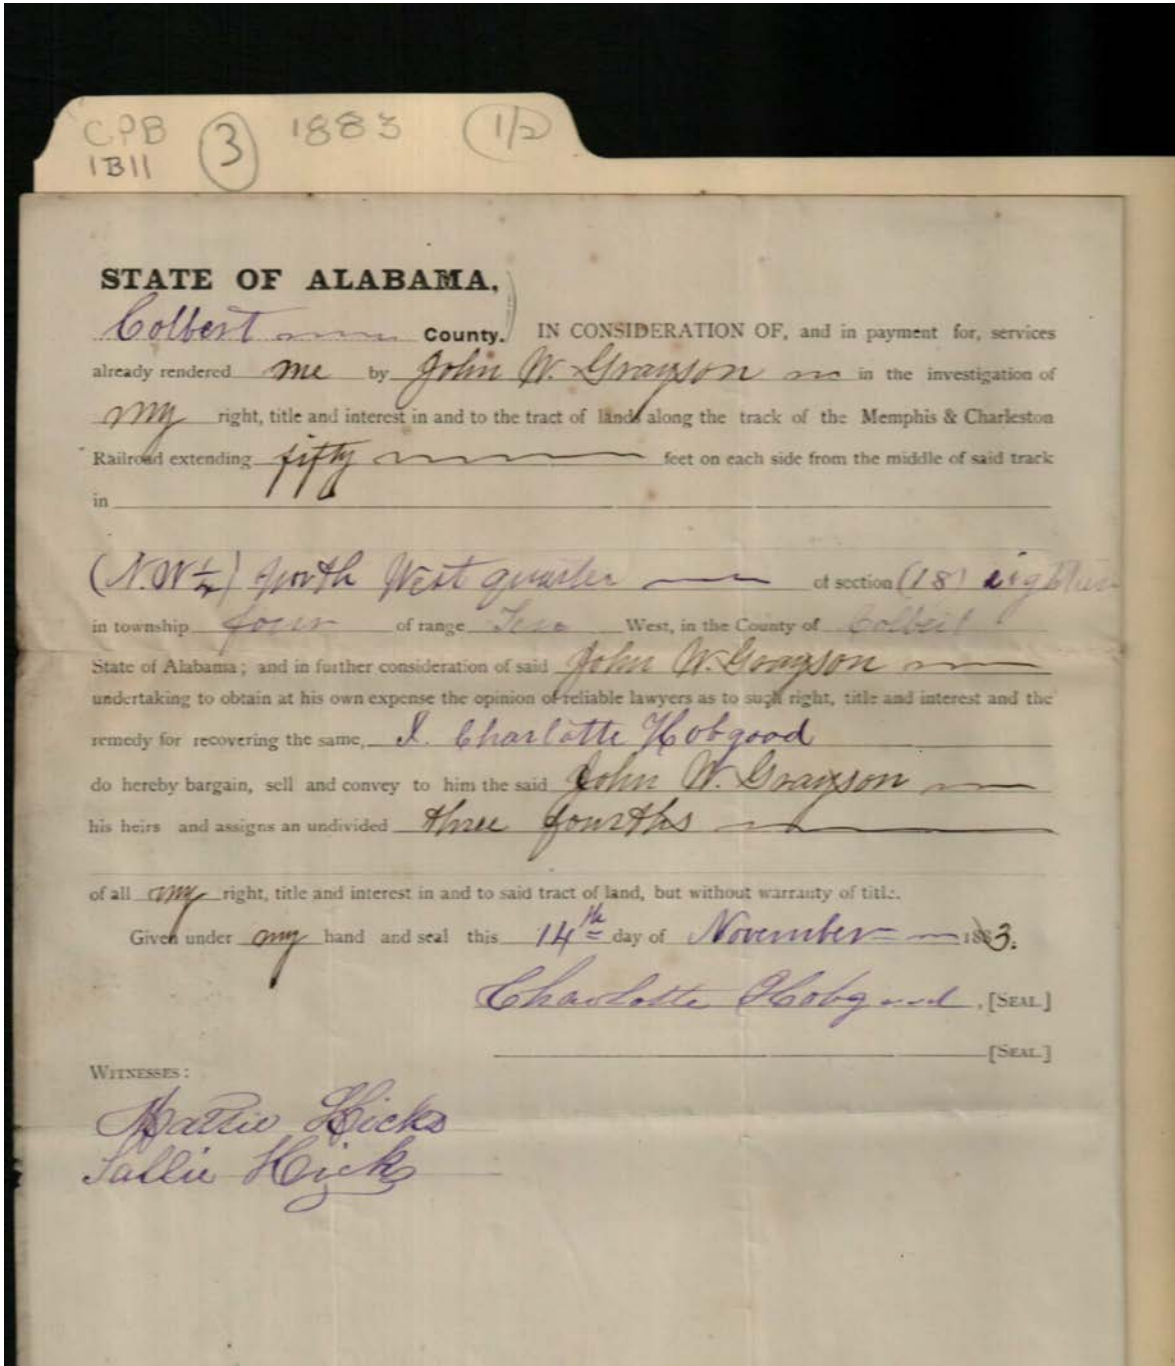 CPB 1B11 3 1883 1/2
STATE OF ALABAMA,
Colbert County. IN CONSIDERATION OF, and in payment for, services
already rendered me by John W. Grayson in the investigation of
my right, title and interest in and to the tract of lands along the track of the Memphis & Charleston
Railroad extending fifty feet on each side from the middle of said track
in
(N.W¼) North West quarter of section (18) eighteen
in township four of range West, in the County of Colbert
State of Alabama; and in further consideration of said John W. Grayson
undertaking to obtain at his own expense the opinion of reliable lawyers as to such right, title and interest and the
remedy for recovering the same, I. Charlotte Hobgood
do hereby bargain, sell and convey to him the said John W. Grayson
his heirs and assigns an undivided three fourths
of all my right, title and interest in and to said tract of land, but without warranty of title.
Given under my hand and seal this 14th day of November 1883.
Charlotte Hobgood, [SEAL.]
[SEAL.]
WITNESSES:
Mattie Hicks
Sallie Hicks